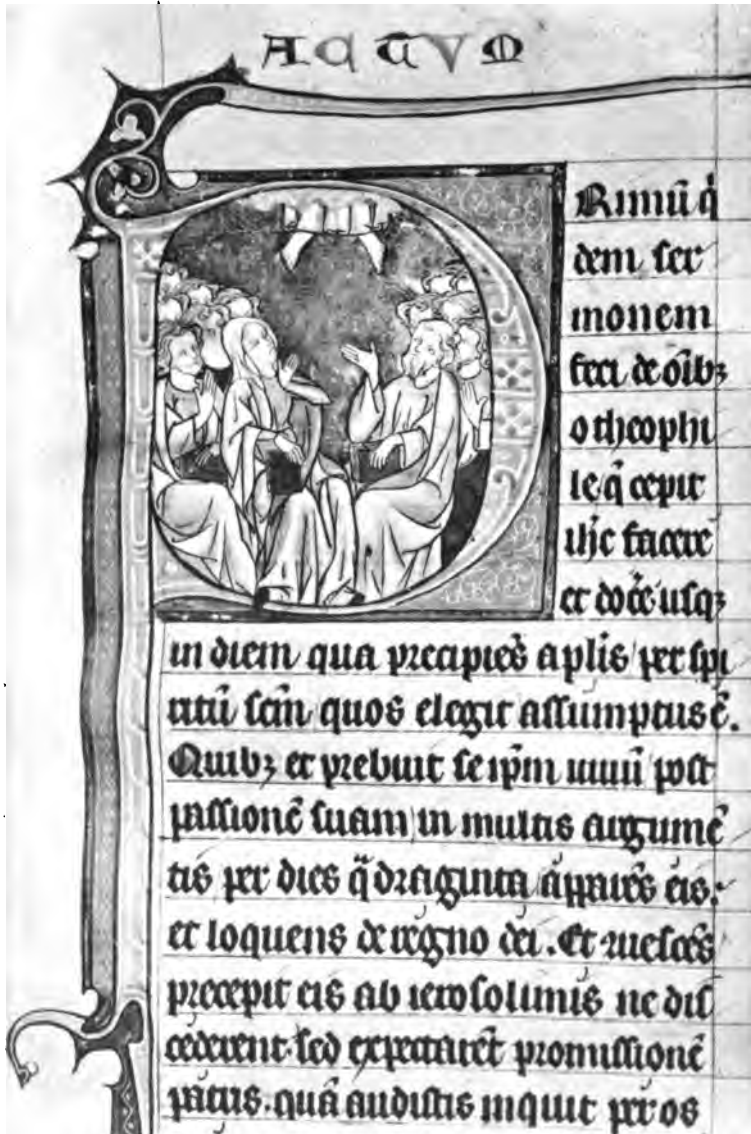 ACTVM
Rimū q̇
dem ser
monem
feci de oībꝫ
o theophi
le q̄ cepit
ihc̄ facere
et doce᷒ usqꝫ
in diem qua precipiēs aplīs per spi
ritū scm̄ quos elegit assumptus ē.
Quibꝫ et prebuit se ip̄m uiuū post
passionē suam in multis augumē
tis per dies q̄draginta apparēs eis.
et loquens de regno dei. Et uescēs
precepit eis ab ierosolimis ne dis
cederent sed expectarēt promissionē
patris. quā audistis inquit per os